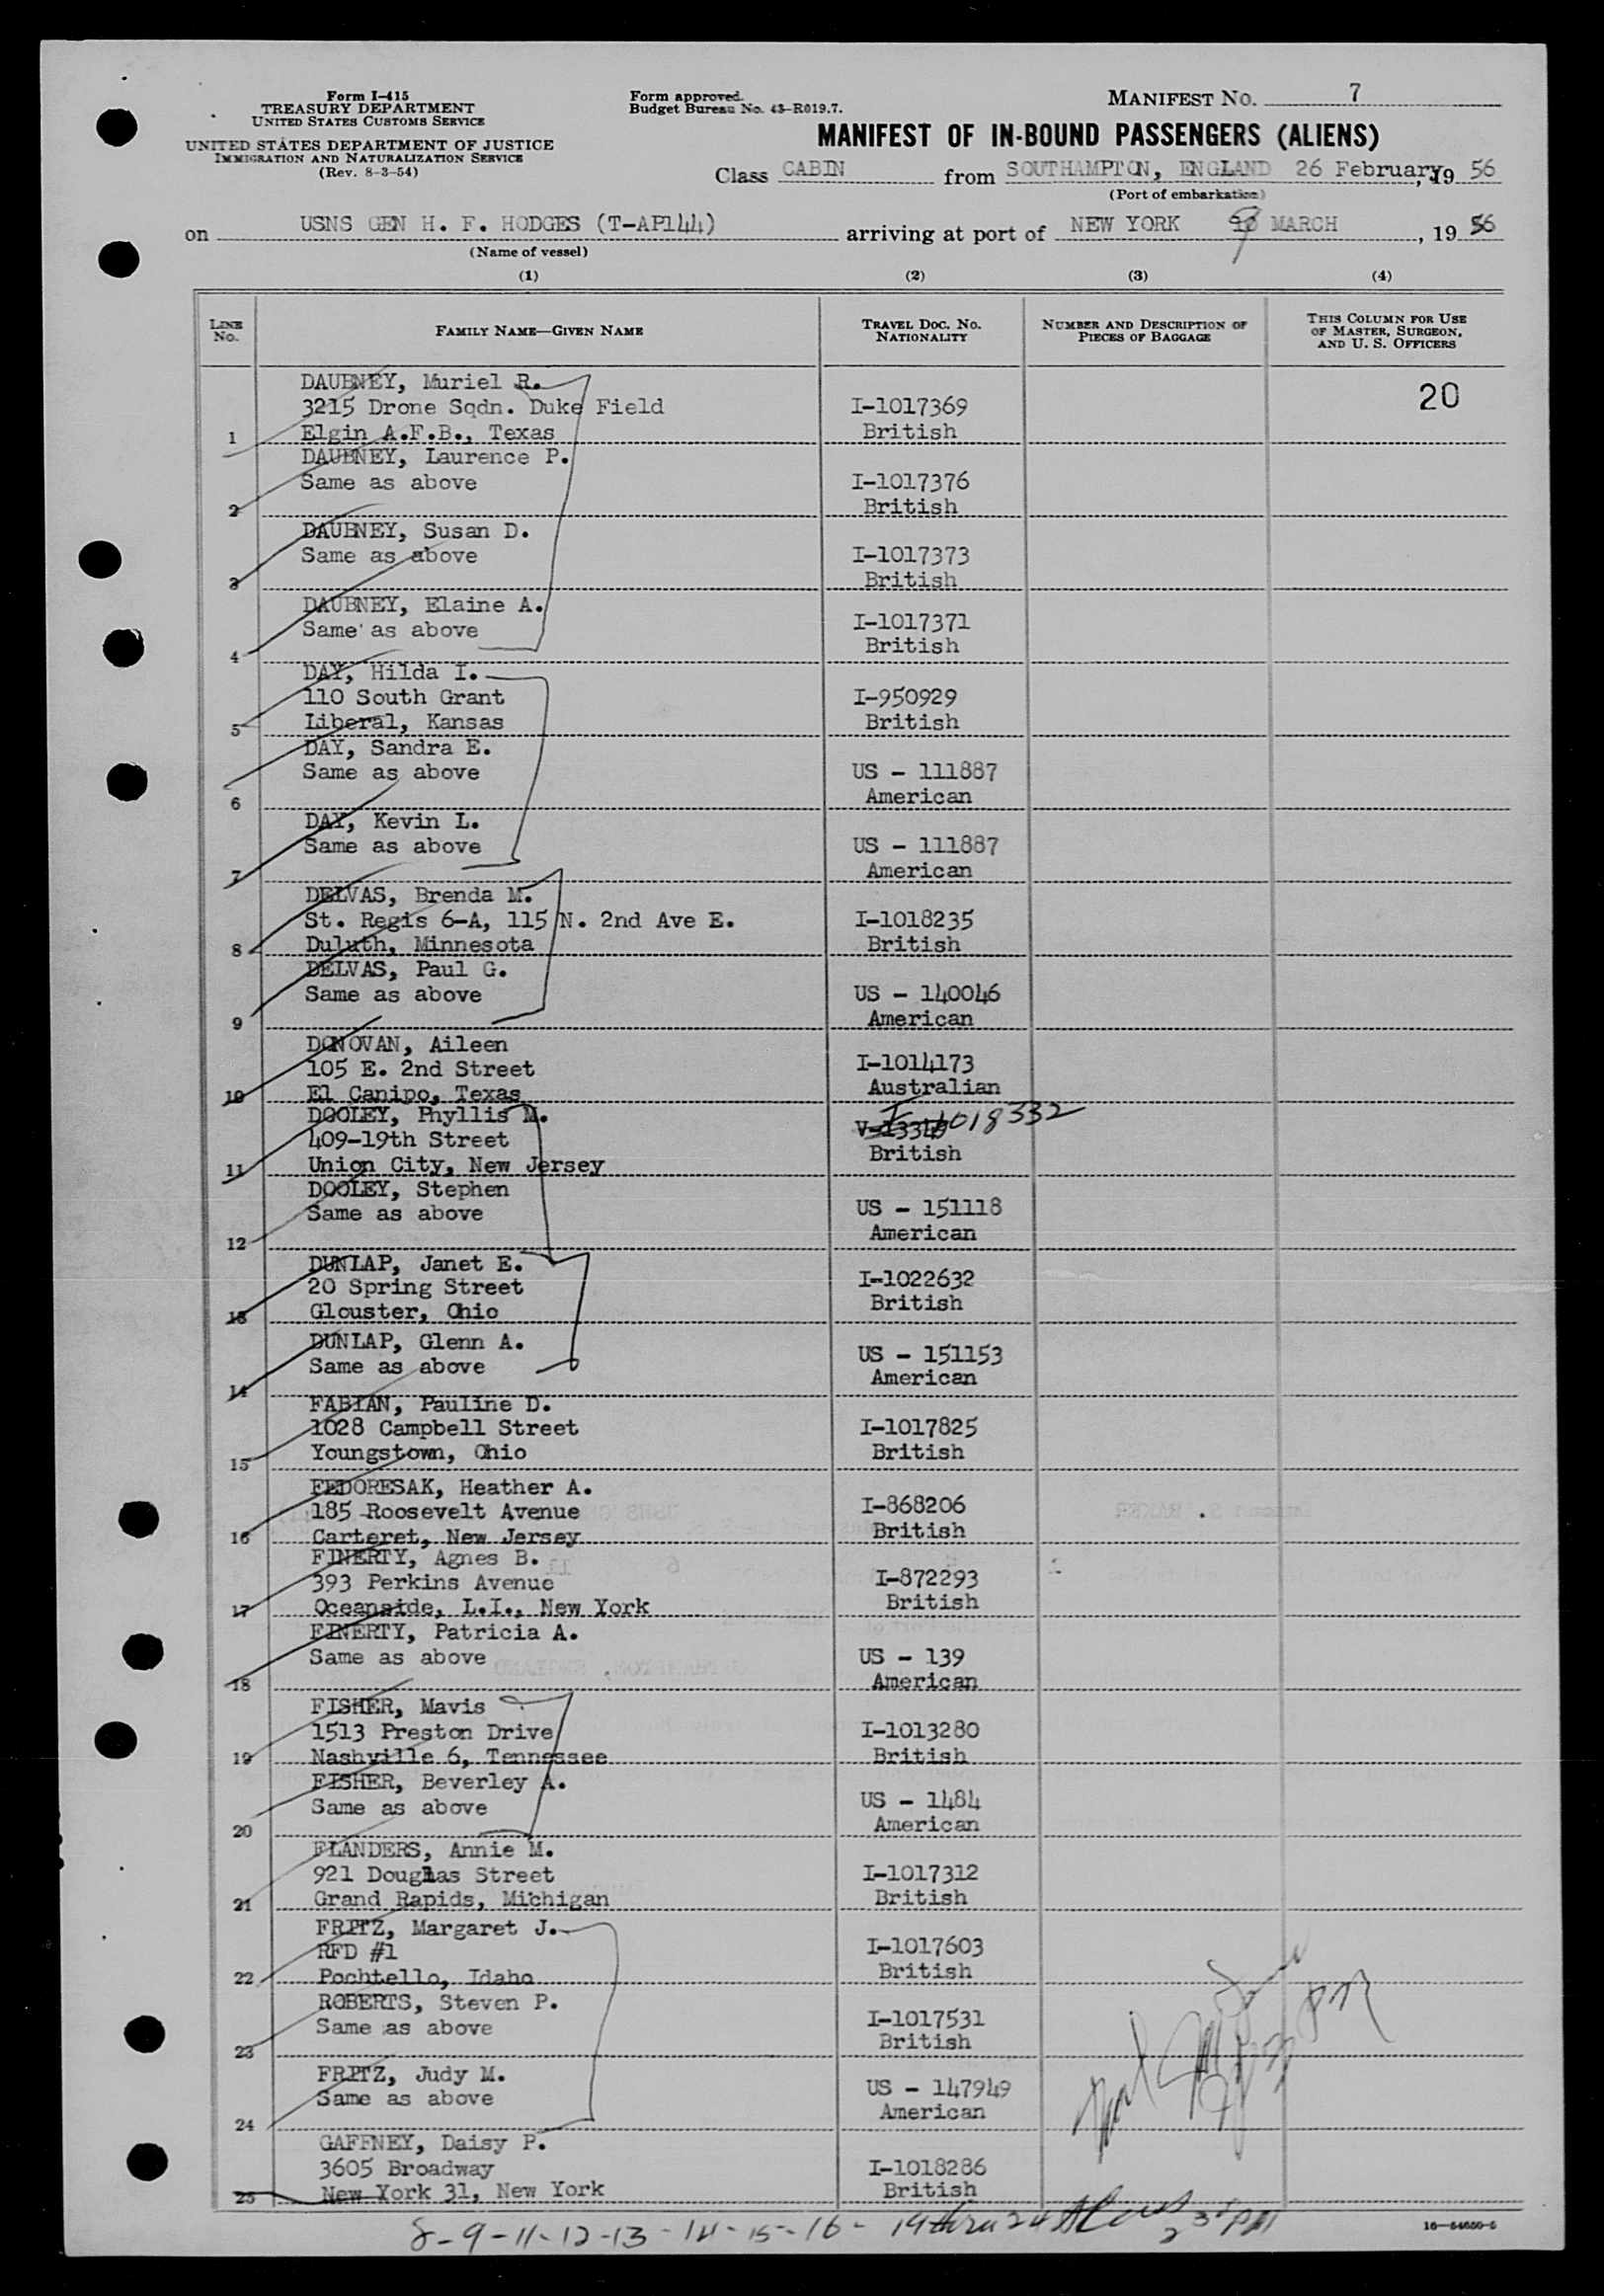 Form I-415
TREASURY DEPARTMENT
UNITED STATES CUSTOMS SERVICE
UNITED STATES DEPARTMENT OF JUSTICE
IMMIGRATION AND NATURALIZATION SERVICE
(Rev. 8-3-54)
Form approved.
Budget Bureau No. 43-R019.7.
MANIFEST NO. 7
MANIFEST OF IN-BOUND PASSENGERS (ALIENS)
Class CABIN from SOUTHAMPTON, ENGLAND 26 February, 19 56
(Port of embarkation)
on USNS GEN H. F. HODGES (T-AP144) arriving at port of NEW YORK 9 MARCH, 19 56
(Name of vessel)
(1) (2) (3) (4)
LINE NO. FAMILY NAME—GIVEN NAME TRAVEL DOC. NO. NATIONALITY NUMBER AND DESCRIPTION OF PIECES OF BAGGAGE THIS COLUMN FOR USE OF MASTER, SURGEON, AND U. S. OFFICERS
20
DAUBNEY, Muriel R.
3215 Drone Sqdn. Duke Field I-1017369
1 Elgin A.F.B., Texas British
DAUBNEY, Laurence P.
Same as above I-1017376
2 British
DAUBNEY, Susan D.
Same as above I-1017373
3 British
DAUBNEY, Elaine A.
Same as above I-1017371
4 British
DAY, Hilda I.
110 South Grant I-950929
5 Liberal, Kansas British
DAY, Sandra E.
Same as above US - 111887
6 American
DAY, Kevin L.
Same as above US - 111887
7 American
DELVAS, Brenda M.
St. Regis 6-A, 115 N. 2nd Ave E. I-1018235
8 Duluth, Minnesota British
DELVAS, Paul G.
Same as above US - 140046
9 American
DONOVAN, Aileen
105 E. 2nd Street I-1014173
10 El Canipo, Texas Australian
DOOLEY, Phyllis M.
409-19th Street I-1018332
11 Union City, New Jersey British
DOOLEY, Stephen
Same as above US - 151118
12 American
DUNLAP, Janet E.
20 Spring Street I-1022632
13 Glouster, Ohio British
DUNLAP, Glenn A.
Same as above US - 151153
14 American
FABIAN, Pauline D.
1028 Campbell Street I-1017825
15 Youngstown, Ohio British
FEDORESAK, Heather A.
185 Roosevelt Avenue I-868206
16 Carteret, New Jersey British
FINERTY, Agnes B.
393 Perkins Avenue I-872293
17 Oceanside, L.I., New York British
FINERTY, Patricia A.
Same as above US - 139
18 American
FISHER, Mavis
1513 Preston Drive I-1013280
19 Nashville 6, Tennessee British
FISHER, Beverley A.
Same as above US - 1484
20 American
FLANDERS, Annie M.
921 Douglas Street I-1017312
21 Grand Rapids, Michigan British
FRITZ, Margaret J.
RFD #1 I-1017603
22 Pochtello, Idaho British
ROBERTS, Steven P.
Same as above I-1017531
23 British
FRITZ, Judy M.
Same as above US - 147949
24 American
GAFFNEY, Daisy P.
3605 Broadway I-1018286
25 New York 31, New York British
8-9-11-12-13-14-15-16- 19 thru 24
16-54650-5